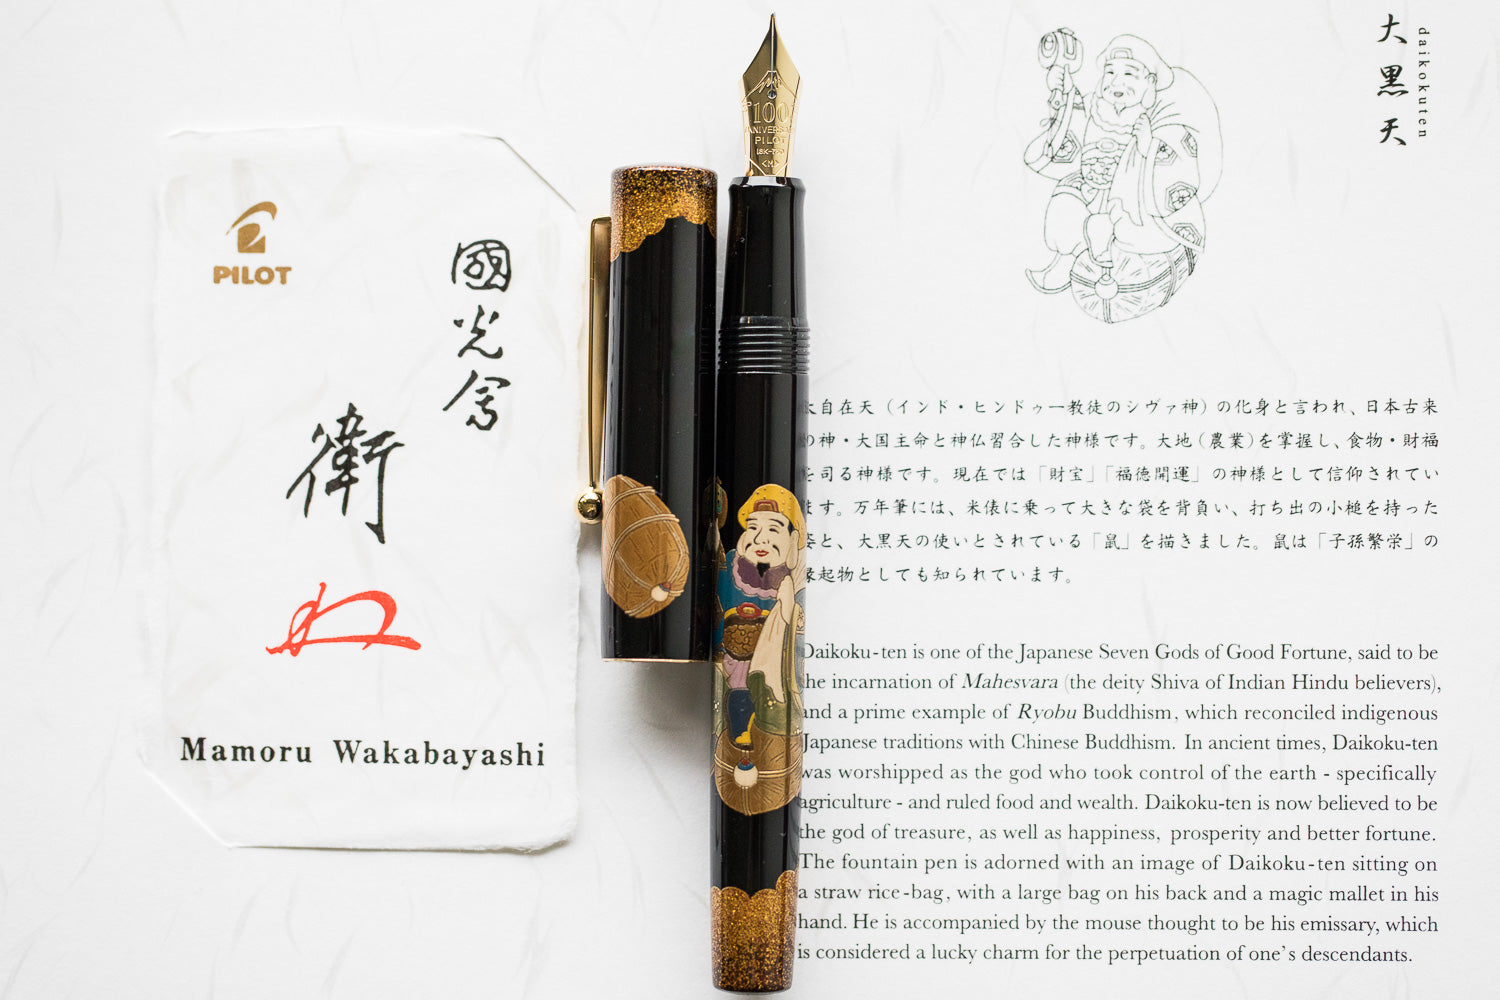 PILOT
國光會
衛
Mamoru Wakabayashi
100
PILOT
18K-750
<M>
大黒天
daikokuten
大自在天（インド・ヒンドゥー教徒のシヴァ神）の化身と言われ、日本古来
の神・大国主命と神仏習合した神様です。大地（農業）を掌握し、食物・財福
を司る神様です。現在では「財宝」「福徳開運」の神様として信仰されてい
ます。万年筆には、米俵に乗って大きな袋を背負い、打ち出の小槌を持った
姿と、大黒天の使いとされている「鼠」を描きました。鼠は「子孫繁栄」の
縁起物としても知られています。
Daikoku-ten is one of the Japanese Seven Gods of Good Fortune, said to be
the incarnation of Mahesvara (the deity Shiva of Indian Hindu believers),
and a prime example of Ryobu Buddhism, which reconciled indigenous
Japanese traditions with Chinese Buddhism. In ancient times, Daikoku-ten
was worshipped as the god who took control of the earth - specifically
agriculture - and ruled food and wealth. Daikoku-ten is now believed to be
the god of treasure, as well as happiness, prosperity and better fortune.
The fountain pen is adorned with an image of Daikoku-ten sitting on
a straw rice-bag, with a large bag on his back and a magic mallet in his
hand. He is accompanied by the mouse thought to be his emissary, which
is considered a lucky charm for the perpetuation of one's descendants.